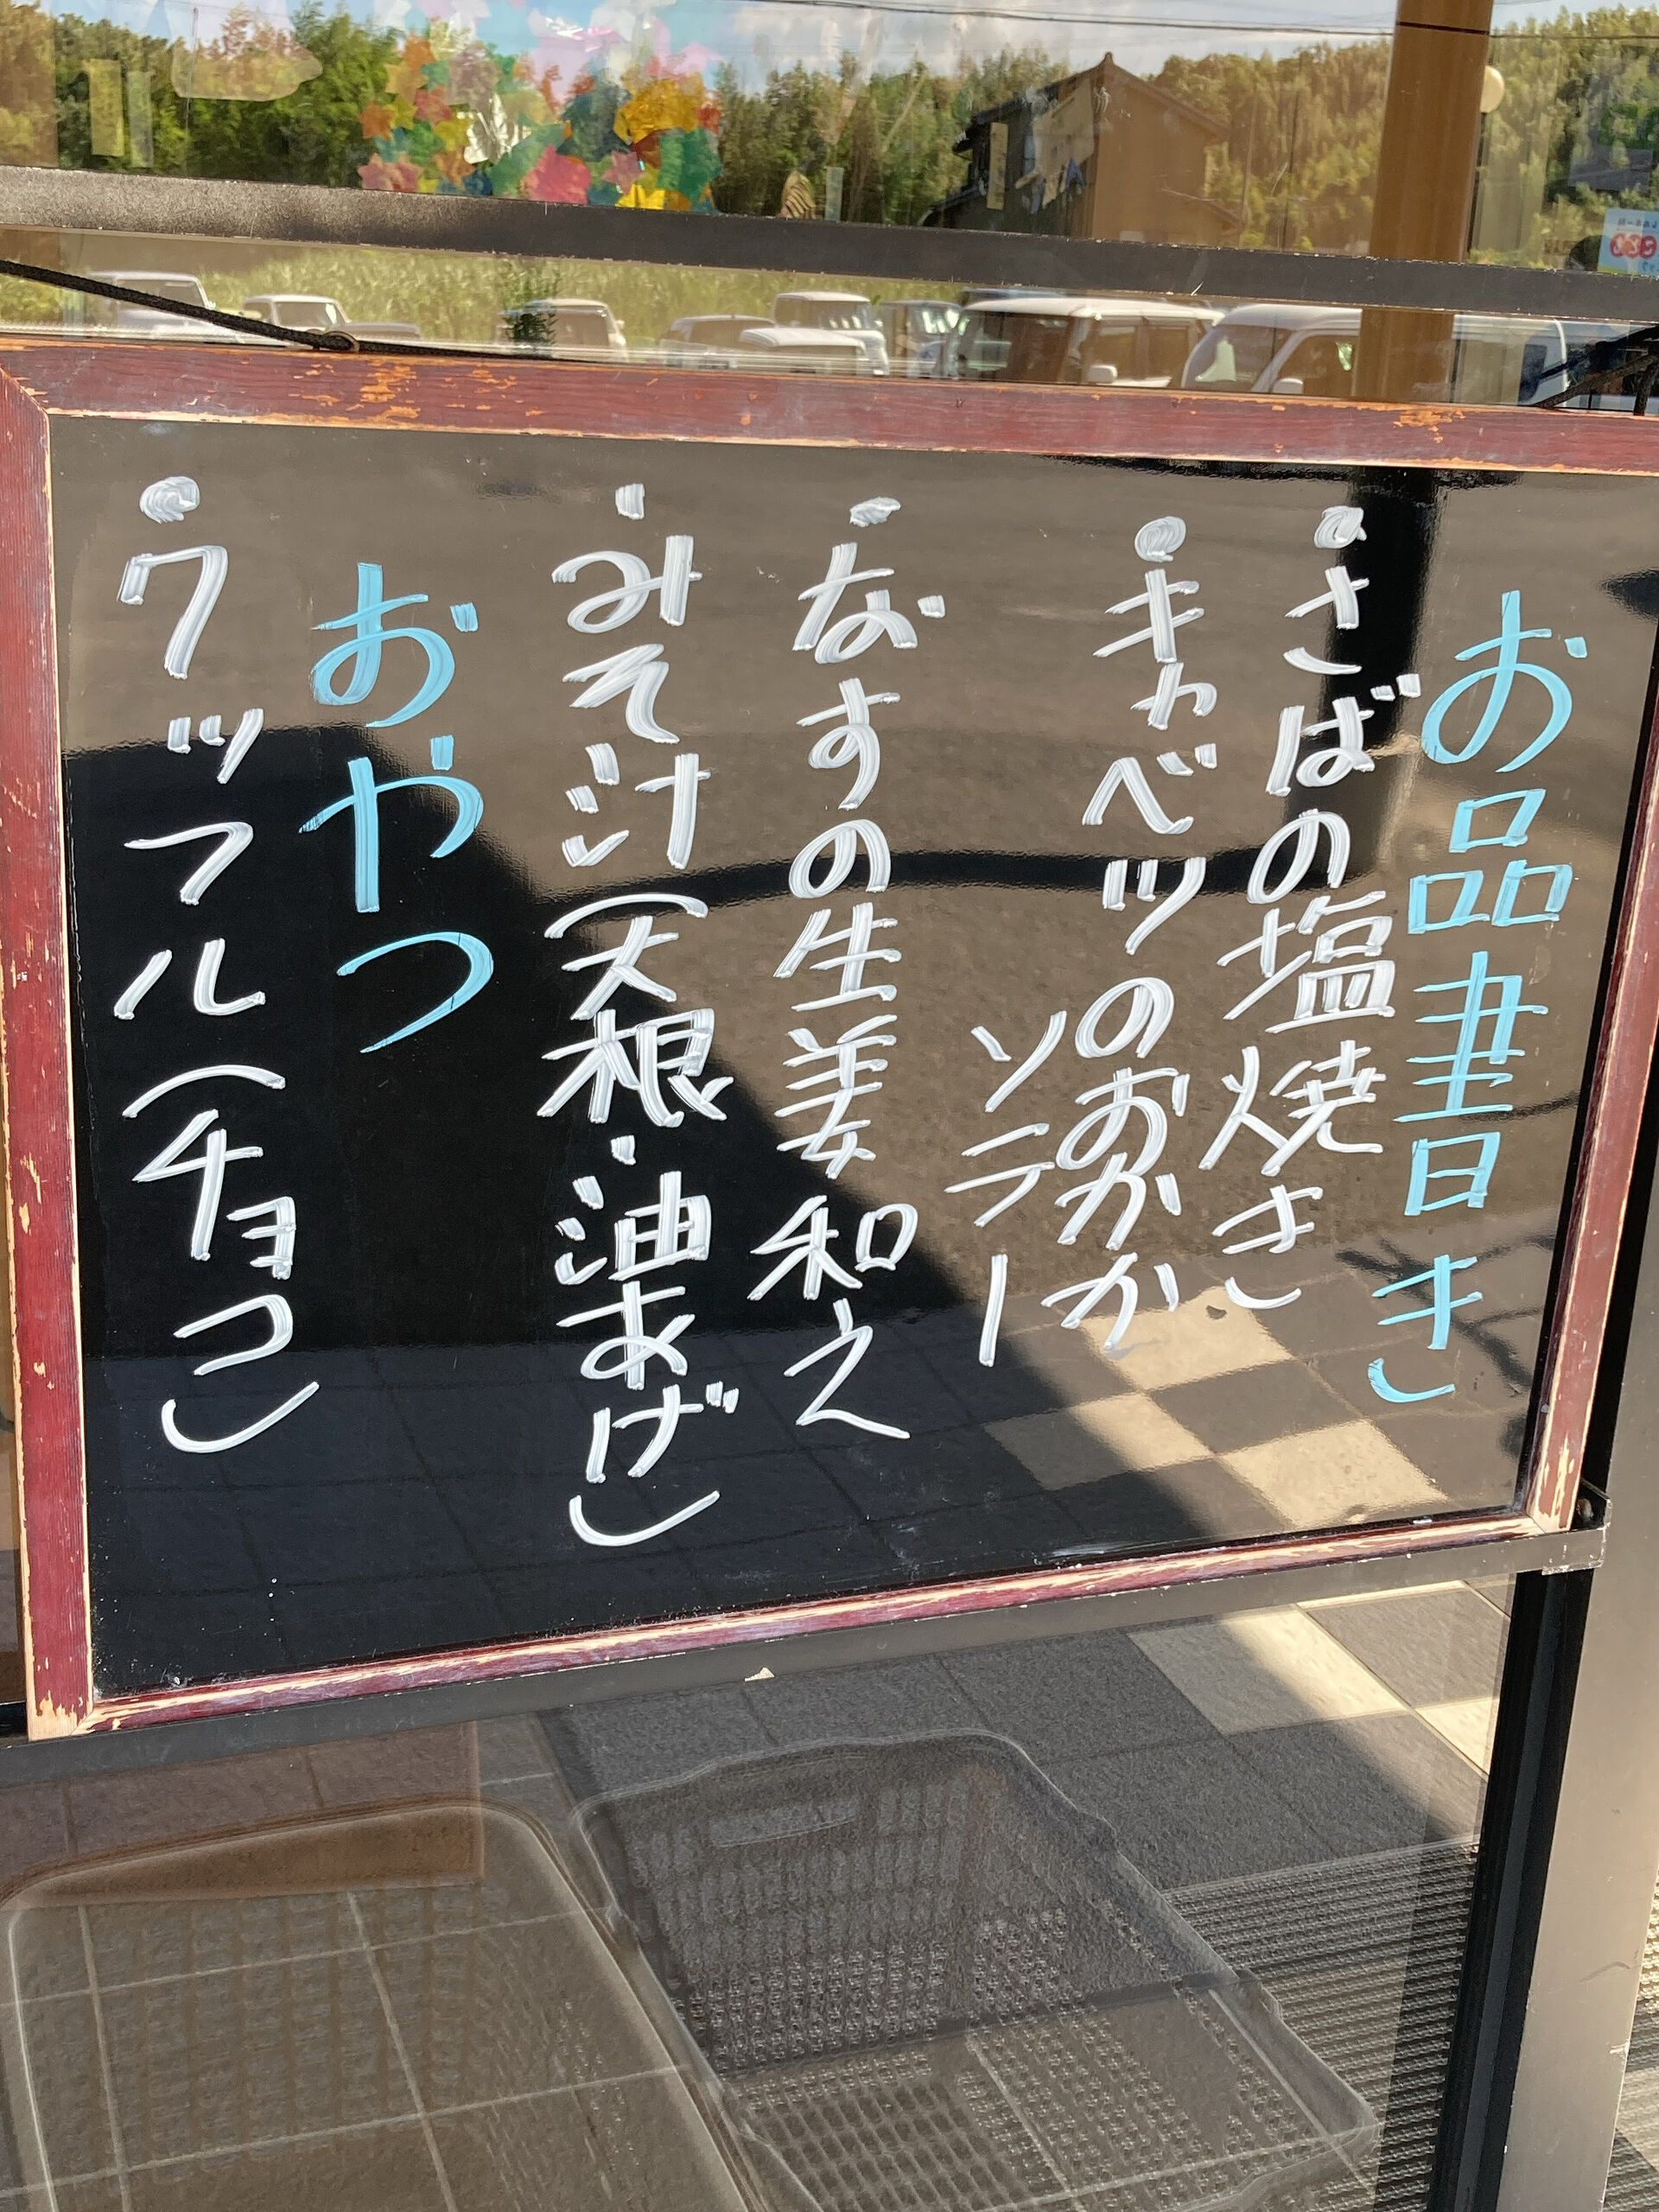 お品書き
・さばの塩焼き
・キャベツのおかか
ソテー
・なすの生姜和え
・みそ汁(大根・油あげ)
おやつ
・ワッフル(チョコ)